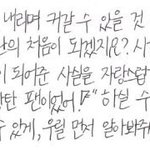 내리며 커갈 수 있을 것
의 처음이 되겠지요? 사
이 되어준 사실을 자랑스럽
탄 팬이었어!" 하실 수
수 있게, 우릴 먼저 알아봐주